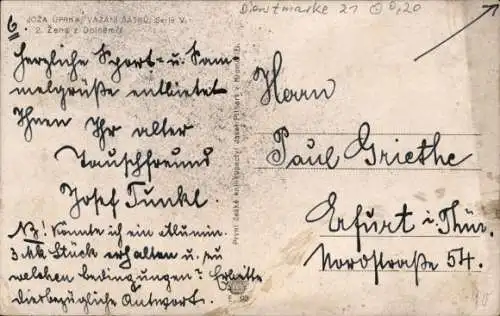 Dienstmarke 21 0,20
6.
JOŽA ÚPRKA, VÁZÁNÍ ŠÁTKŮ, Serie V.
2. Žena z Dolněmčí
Herzliche Sport- u. Sam-
melgrüße entbietet
Ihnen Ihr alter
Tauschfreund
Josef Tunkl.
NB! Könnte ich ein Alumin.
3 Mk Stück erhalten u. zu
welchen Bedingungen? Erbitte
diesbezügliche Antwort.
První české knihkupectví Josef Pithart v Kroměříži.
Herrn
Paul Griethe
Erfurt i. Thür.
Nordstraße 54.